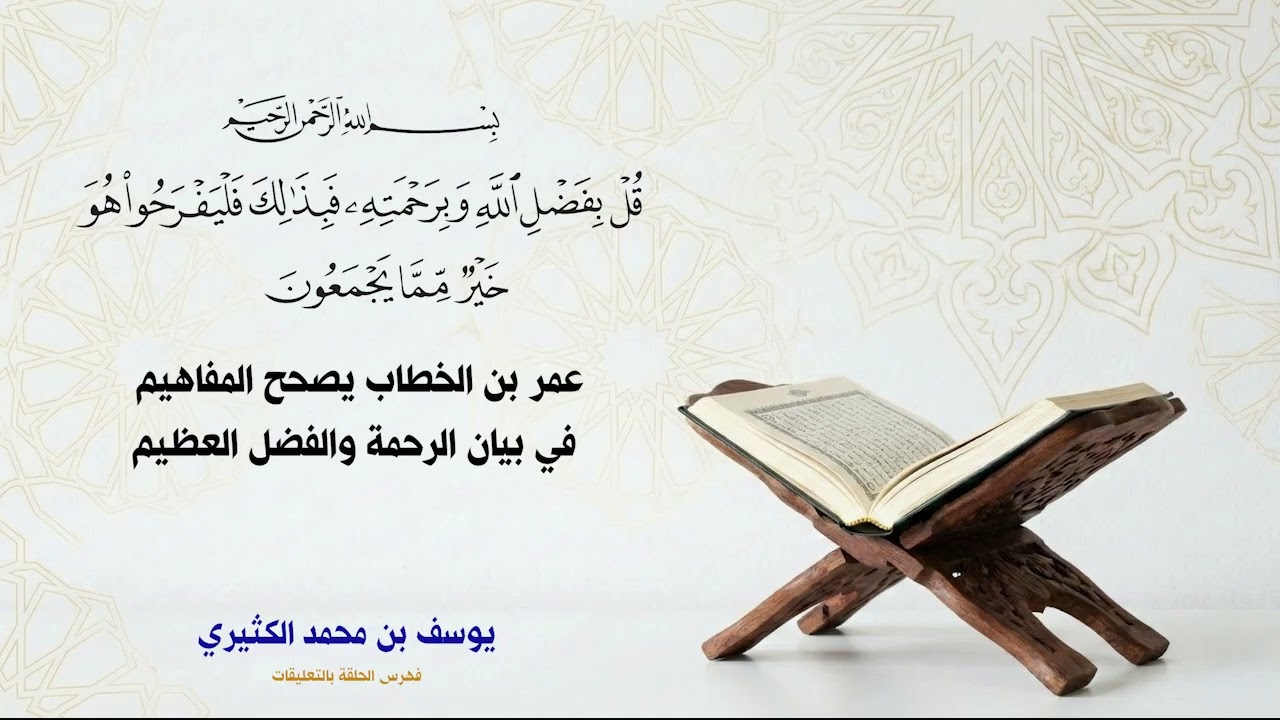 بِسْمِ اللَّهِ الرَّحْمَٰنِ الرَّحِيمِ
قُلْ بِفَضْلِ ٱللَّهِ وَبِرَحْمَتِهِۦ فَبِذَٰلِكَ فَلْيَفْرَحُوا۟ هُوَ
خَيْرٌ مِّمَّا يَجْمَعُونَ
عمر بن الخطاب يصحح المفاهيم
في بيان الرحمة والفضل العظيم
يوسف بن محمد الكثيري
فهرس الحلقة بالتعليقات